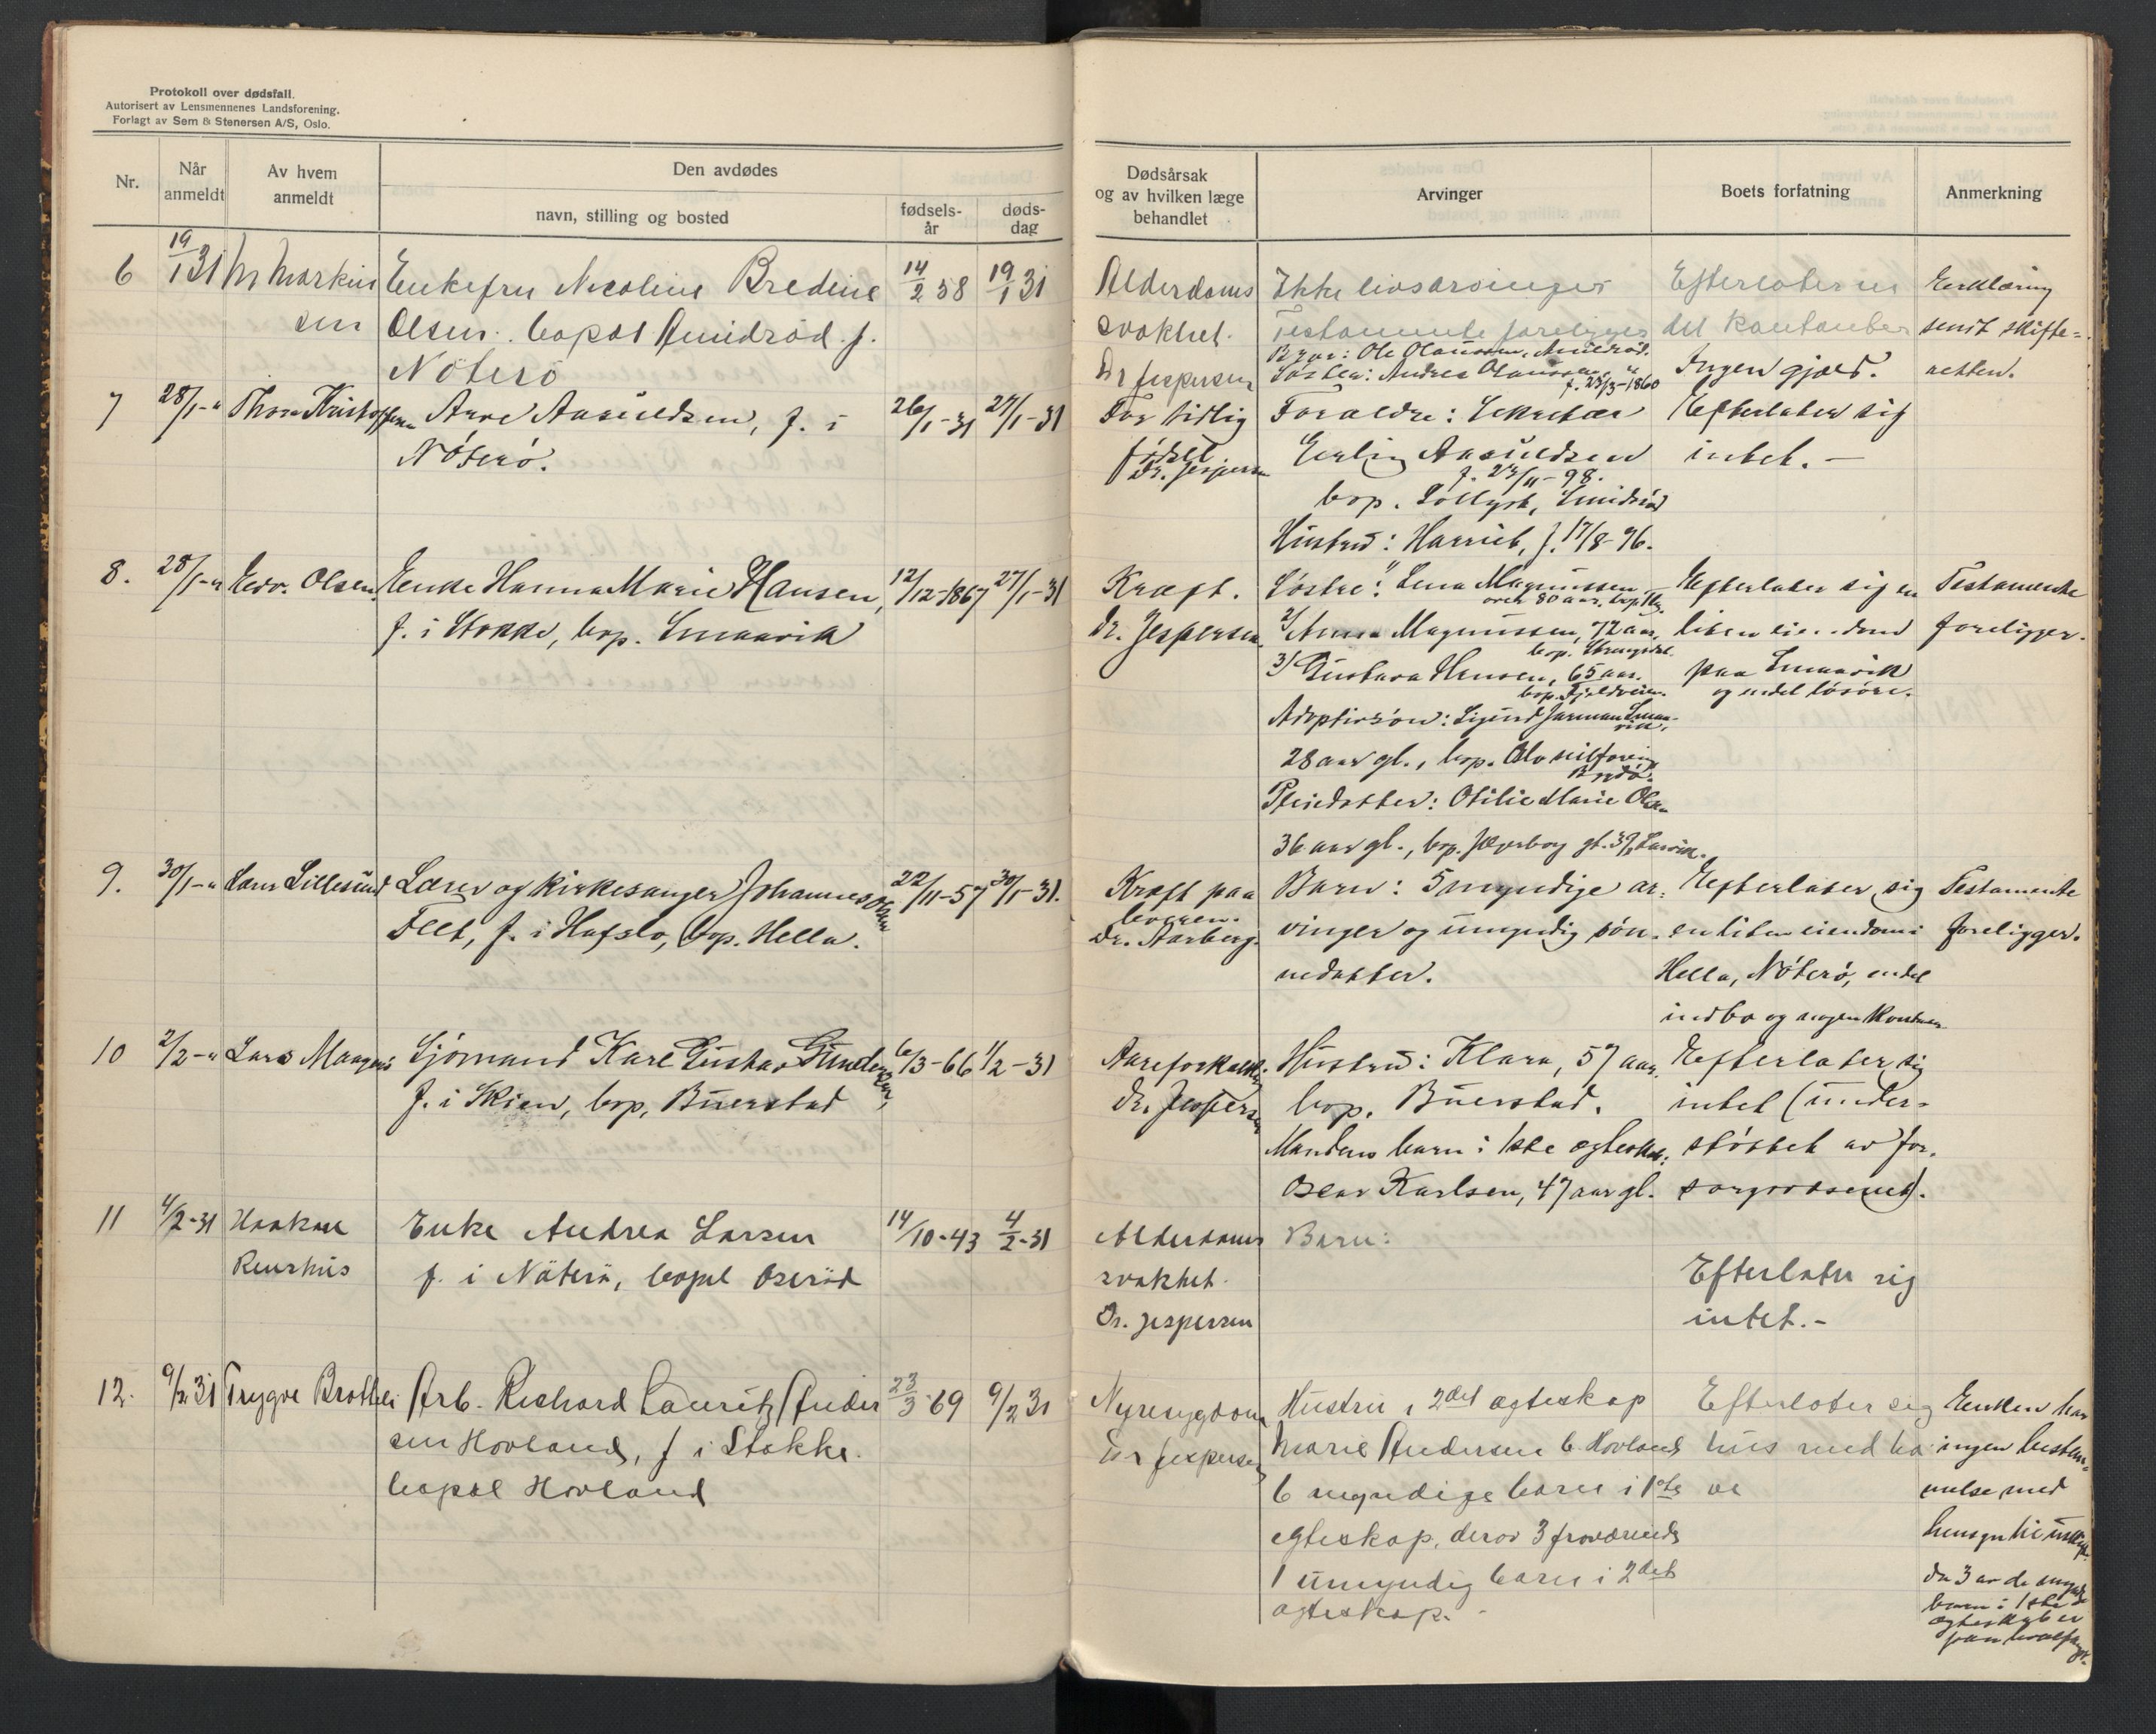 Protokoll over dødsfall.
Autorisert av Lensmennenes Landsforening.
Forlagt av Sem & Stenersen A/S, Oslo.
Nr.
Når
anmeldt
Av hvem
anmeldt
Den avdødes
navn, stilling og bosted
fødsels-
år
døds-
dag
Dødsårsak
og av hvilken læge
behandlet
Arvinger
Boets forfatning
Anmerkning
6
19/1 31
M Markus
sen
Enkefru Nicoline Bredine
Olsen. bopæl Smidsrød f.
Nöterö
14/2 58
19/1 31
Alderdoms
svakhet.
Dr Jespersen
Ikke livsarvinger
Testamente foreligger
Bror: Ole Olaussen, Smidsröd.
Søster: Andrea Olaussen "
f. 23/3-1860
Efterlater en
del kontanter
Ingen gjæld.
Erklæring
sendt skifte-
retten.
7
28/1-"
Thora Kristoffersen
Arve Aasuldsen, f. i
Nöterö.
26/1-31
27/1-31
For tidlig
födsel.
Dr. Jespersen
Foraldre: Sekretær
Erling Aasuldsen
f. 23/11-98.
bop. Solbyst, Smidsröd
Hustru: Harriet, f. 17/8-96.
Efterlater sig
intet. —
8.
28/1-"
Edv. Olsen.
Enke Hanna Marie Hansen,
f. i Stokke, bop. Smaavik
12/12-1867
27/1-31
Kræft.
Dr. Jespersen
Søstre: 1/ Lena Magnussen,
over 80 aar, bop. Tbg.
2/ Anna Magnussen, 72 aar,
bop.
3/ Gustava Hansen, 65 aar.
bop. Fjeldveien.
Adoptivsön: Sigurd Herman Smaa-
vik,
28 aar gl., bop.
Bygdö.
Pleiedatter: Otilie Marie Olsen
36 aar gl., bop. Jegersborg gt. 37, Larvik.
Efterlater sig en
liten eiendom
paa Smaavik
og endel lösöre.
Testamente
foreligger.
9.
30/1-"
Lars Lillesund
Lærer og kirkesanger Johannes Olsen
Flet, f. i Hafslo, bop. Hella.
22/11-57
30/1-31.
Kræft paa
leveren.
Dr. Aarberg.
Barn: 5 myndige ar-
vinger og umyndig sön-
nedatter.
Efterlater sig
en liten eiendom i
Hella, Nöterö, endel
indbo og nogen kontanter
Testamente
foreligger.
10
2/2-"
Lars Maagerö
Sjömand Karl Gustav Gundersen,
f. i Skien, bop. Buerstad
6/3-66
1/2-31
Aareforkalkn.
Dr. Jespersen
Hustru: Klara, 57 aar,
bop. Buerstad.
Mandens barn i 1ste ægteskab:
Oscar Karlsen, 47 aar gl.
Efterlater sig
intet (under-
stöttet av for-
sorgsvæsenet).
11
4/2-31
Haakon
Reierhus
Enke Andrea Larsen
f. i Nöterö, bopæl Oseröd
14/10-43
4/2-31
Alderdoms
svakhet.
Dr. Jespersen
Barn:
Efterlater sig
intet.-
12.
9/2 31
Trygve Bratteli
Arb. Richard Lauritz Ander
sen Hovland, f i Stokke.
bopæl Hovland
23/3-69
9/2 31
Nyresygdom
Dr Jespersen
Hustru i 2det ægteskap
Marie Andersen b. Hovland
6 myndige barn i 1ste
egteskap, derav 3 fraværende
1 umyndig barn i 2det
ægteskap. -
Efterlater sig
hus med ha
ve
Enken har
ingen bestem-
melse med
hensyn til uskifte
da 3 av de myndige
barn i 1ste
ægteskab er
paa hvalfangst.